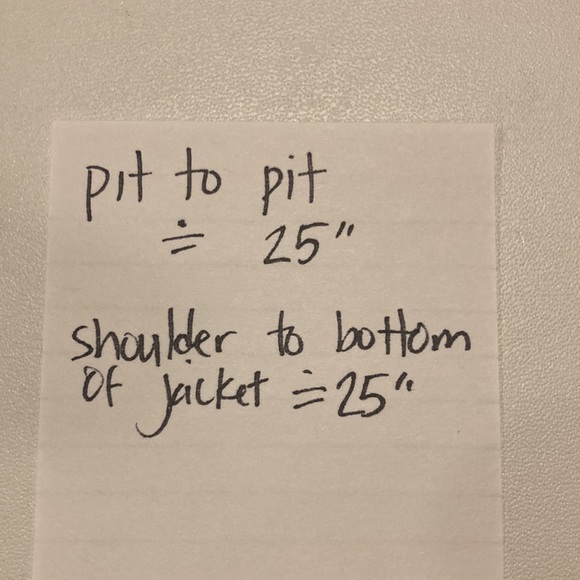 pit to pit
≐ 25"
shoulder to bottom
of jacket ≐ 25"